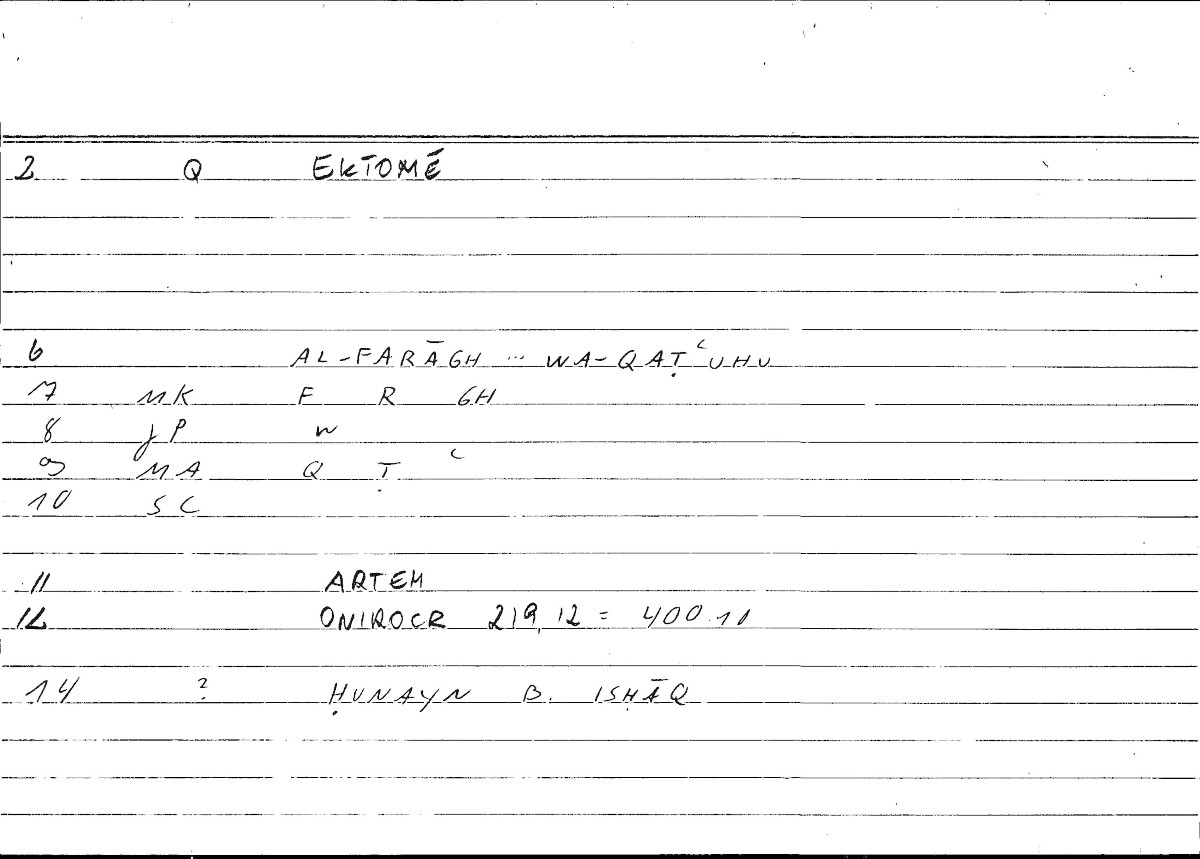 2 Q EKTOMĒ
6 AL-FARĀGH ... WA-QAṬʿUHU
7 MK F R GH
8 JP W
9 MA Q Ṭ ʿ
10 SC
11 ARTEM
12 ONIROCR 219,12 = 400.10
14 ? ḤUNAYN B. ISḤĀQ